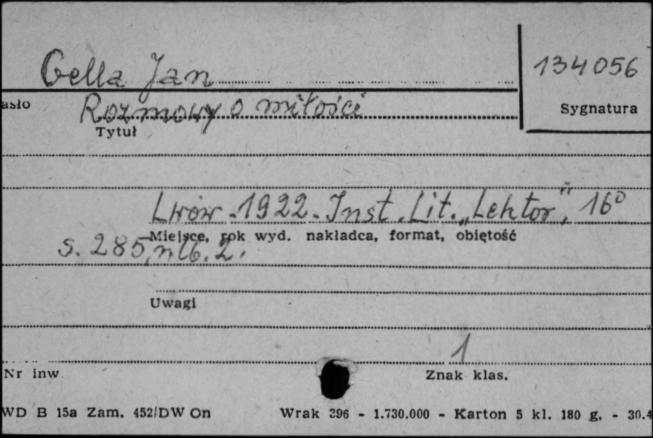 Gella Jan
134056
asło
Rozmowy o miłości
Sygnatura
Tytuł
Lwów. 1922. Inst. Lit. „Lektor", 16°
Miejsce, rok wyd. nakładca, format, objętość
s. 285, nlb. 2.
Uwagi
1
Nr inw
Znak klas.
WD B 15a Zam. 452/DW On
Wrak 396 - 1.730.000 - Karton 5 kl. 180 g. - 30.4